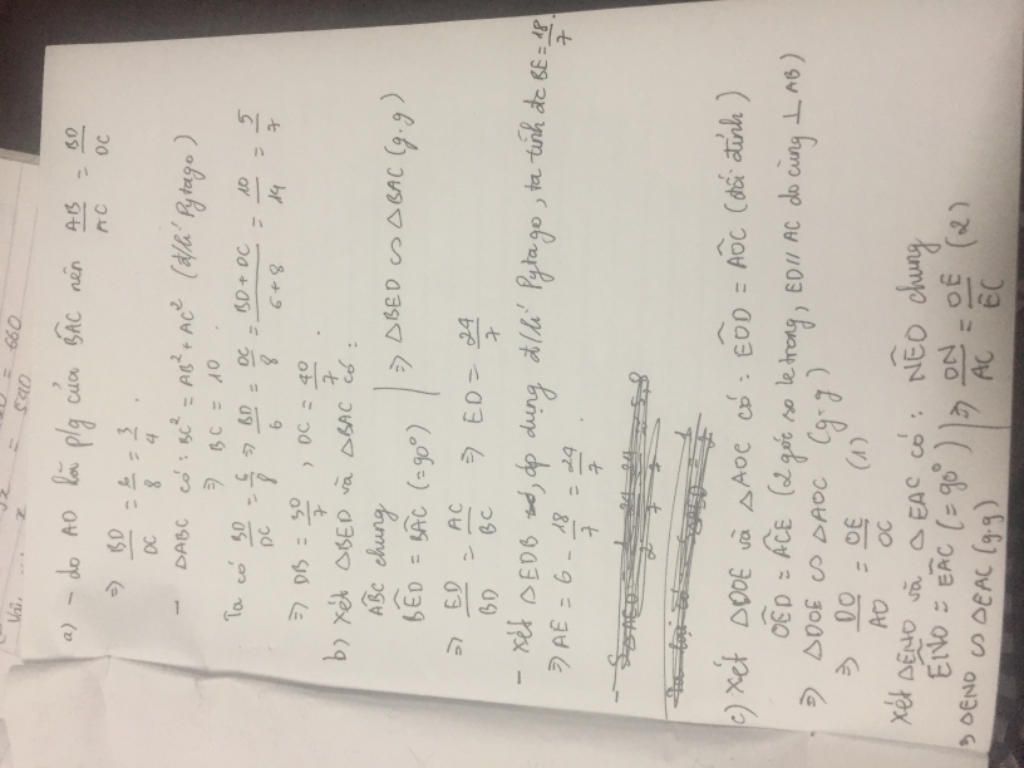 a) - do AD là p/g của BÂC nên AB/AC = BD/DC
⇒ BD/DC = 6/8 = 3/4.
- ΔABC có: BC² = AB² + AC² (đ/lí Pytago)
⇒ BC = 10.
Ta có BD/DC = 6/8 ⇒ BD/6 = DC/8 = BD + DC/6 + 8 = 10/14 = 5/7
⇒ DB = 30/7, DC = 40/7.
b) Xét ΔBED và ΔBAC có:
AB̂C chung
BÊD = BÂC (= 90°) | ⇒ ΔBED ∽ ΔBAC (g.g)
⇒ ED/BD = AC/BC ⇒ ED = 24/7
- Xét ΔEDB, áp dụng đ/lí Pytago, ta tính đc BE = 18/7
⇒ AE = 6 - 18/7 = 24/7
c) Xét ΔDOE và ΔAOC có: EÔD = AÔC (đối đỉnh)
OÊD = AĈE (2 góc so le trong, ED // AC do cùng ⊥ AB)
⇒ ΔDOE ∽ ΔAOC (g.g)
⇒ DO/AO = OE/OC (1)
Xét ΔENO và ΔEAC có: NÊO chung
EN̂O = EÂC (= 90°)
⇒ ΔENO ∽ ΔEAC (g.g) | ⇒ ON/AC = OE/EC (2)